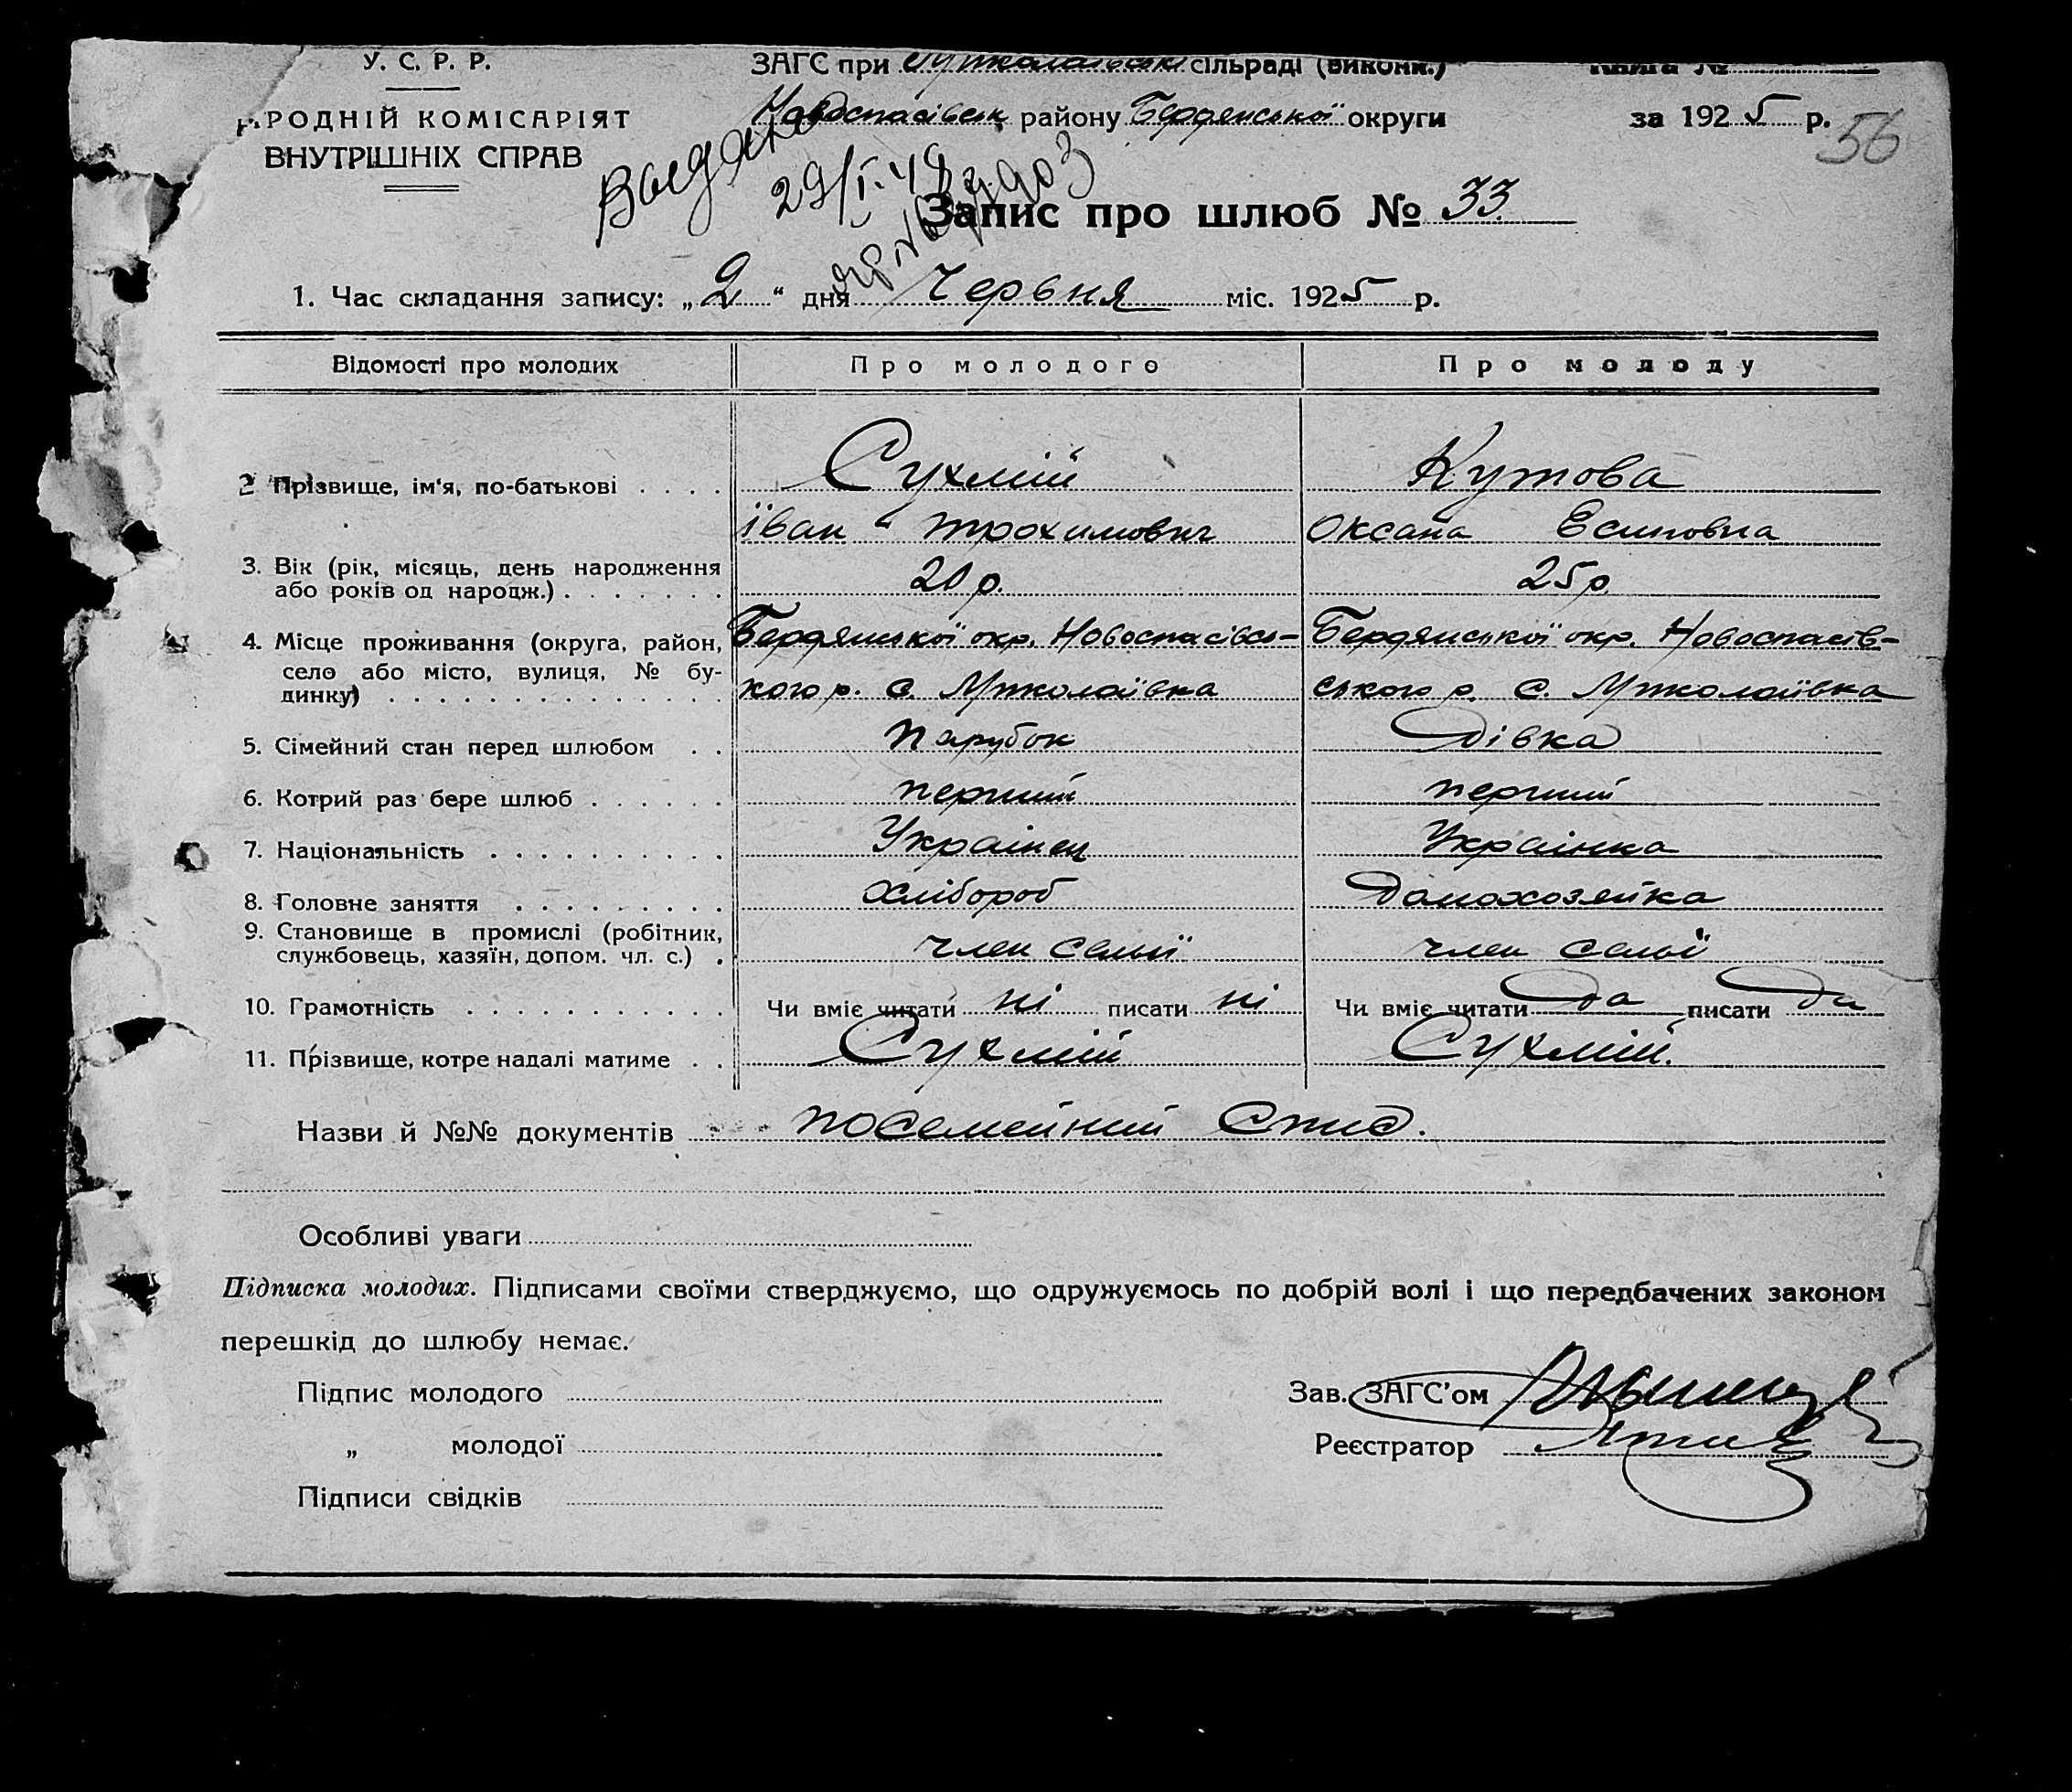 У. С. Р. Р.
РОДНІЙ КОМІСАРІЯТ
ВНУТРІШНІХ СПРАВ
ЗАГС при сільраді (викони.)
Новоспасівськ району Бердянської округи
Книга №
за 1925 р.
56
29/I-49
Запис про шлюб № 33
1. Час складання запису: „2“ дня Червня міс. 1925 р.
Відомості про молодих Про молодого Про молоду
2 Прізвище, ім‘я, по-батькові . . . . Сухмій Кутова
Іван Трохимович Оксана Есиповна
3. Вік (рік, місяць, день народження
або років од народж.) . . . . . . . 20 р. 25 р.
4. Місце проживання (округа, район, Бердянської окр. Новоспасівсь- Бердянської окр. Новоспасів-
село або місто, вулиця, № бу-
динку) . . . . . . . . . . . . . . кого р. с. Миколаївка ського р. с. Миколаївка
5. Сімейний стан перед шлюбом . . Парубок Дівка
6. Котрий раз бере шлюб . . . . . . перший перший
7. Національність . . . . . . . . . . Українец Українка
8. Головне заняття . . . . . . . . . Хлібороб Домохозяйка
9. Становище в промислі (робітник,
службовець, хазяїн, допом. чл. с.) . член семьї член семьї
10. Грамотність . . . . . . . . . . . Чи вміє читати ні писати ні Чи вміє читати да писати да
11. Прізвище, котре надалі матиме . . Сухмій Сухмій.
Назви й №№ документів посемейний спис.
Особливі уваги
Підписка молодих. Підписами своїми стверджуємо, що одружуємось по добрій волі і що передбачених законом
перешкід до шлюбу немає.
Підпис молодого
„ молодої
Підписи свідків
Зав. ЗАГС’ом
Реєстратор